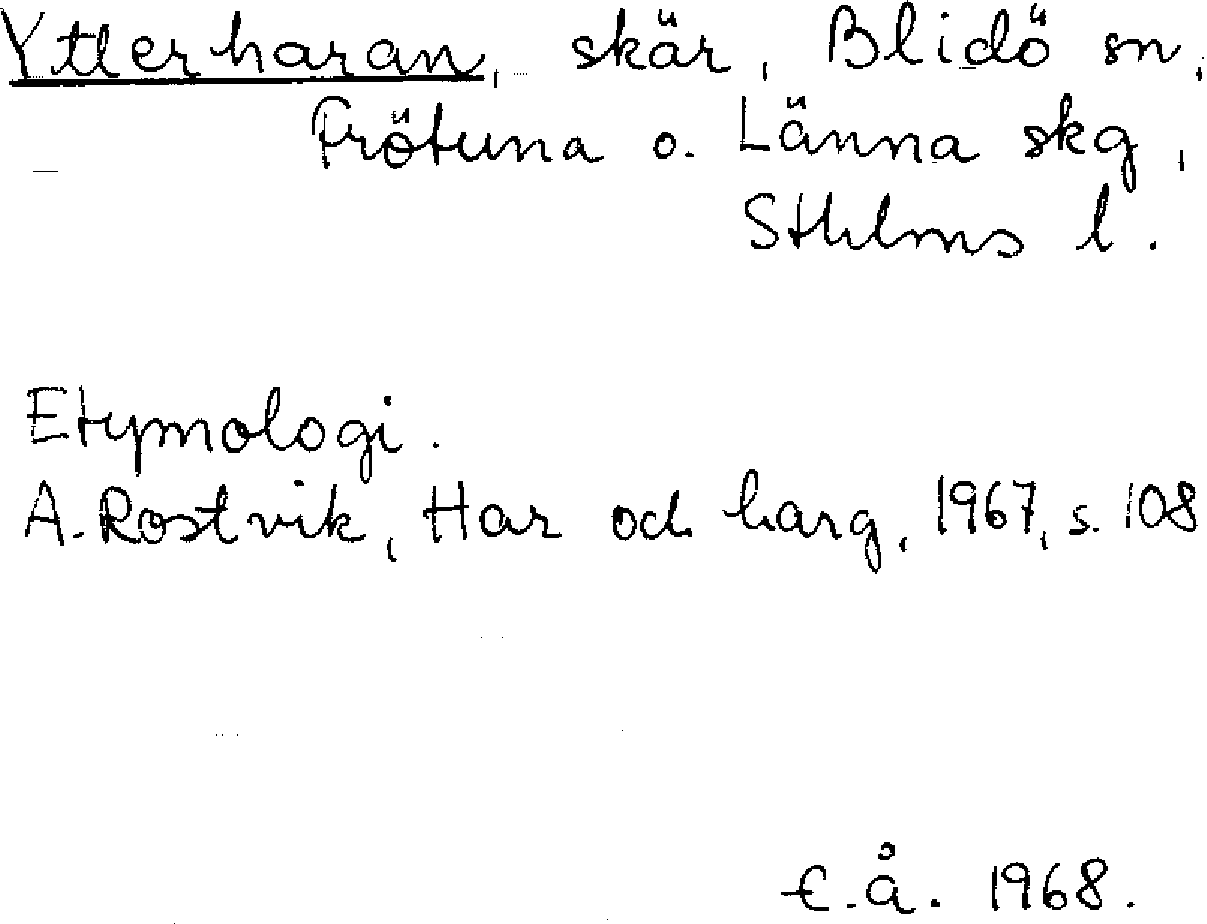 Ytterharan, skär, Blidö sn,
Frötuna o. Länna skg,
Sthlms l.
Etymologi.
A. Rostvik, Har och harg, 1967, s. 108
E.Å. 1968.